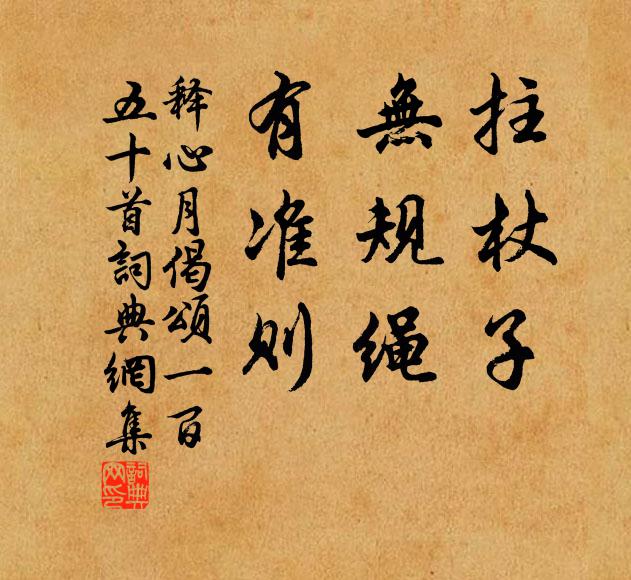 拄杖子
無規绳
有准则
释心月偈頌一百
五十首詞典網集
詞典
网印